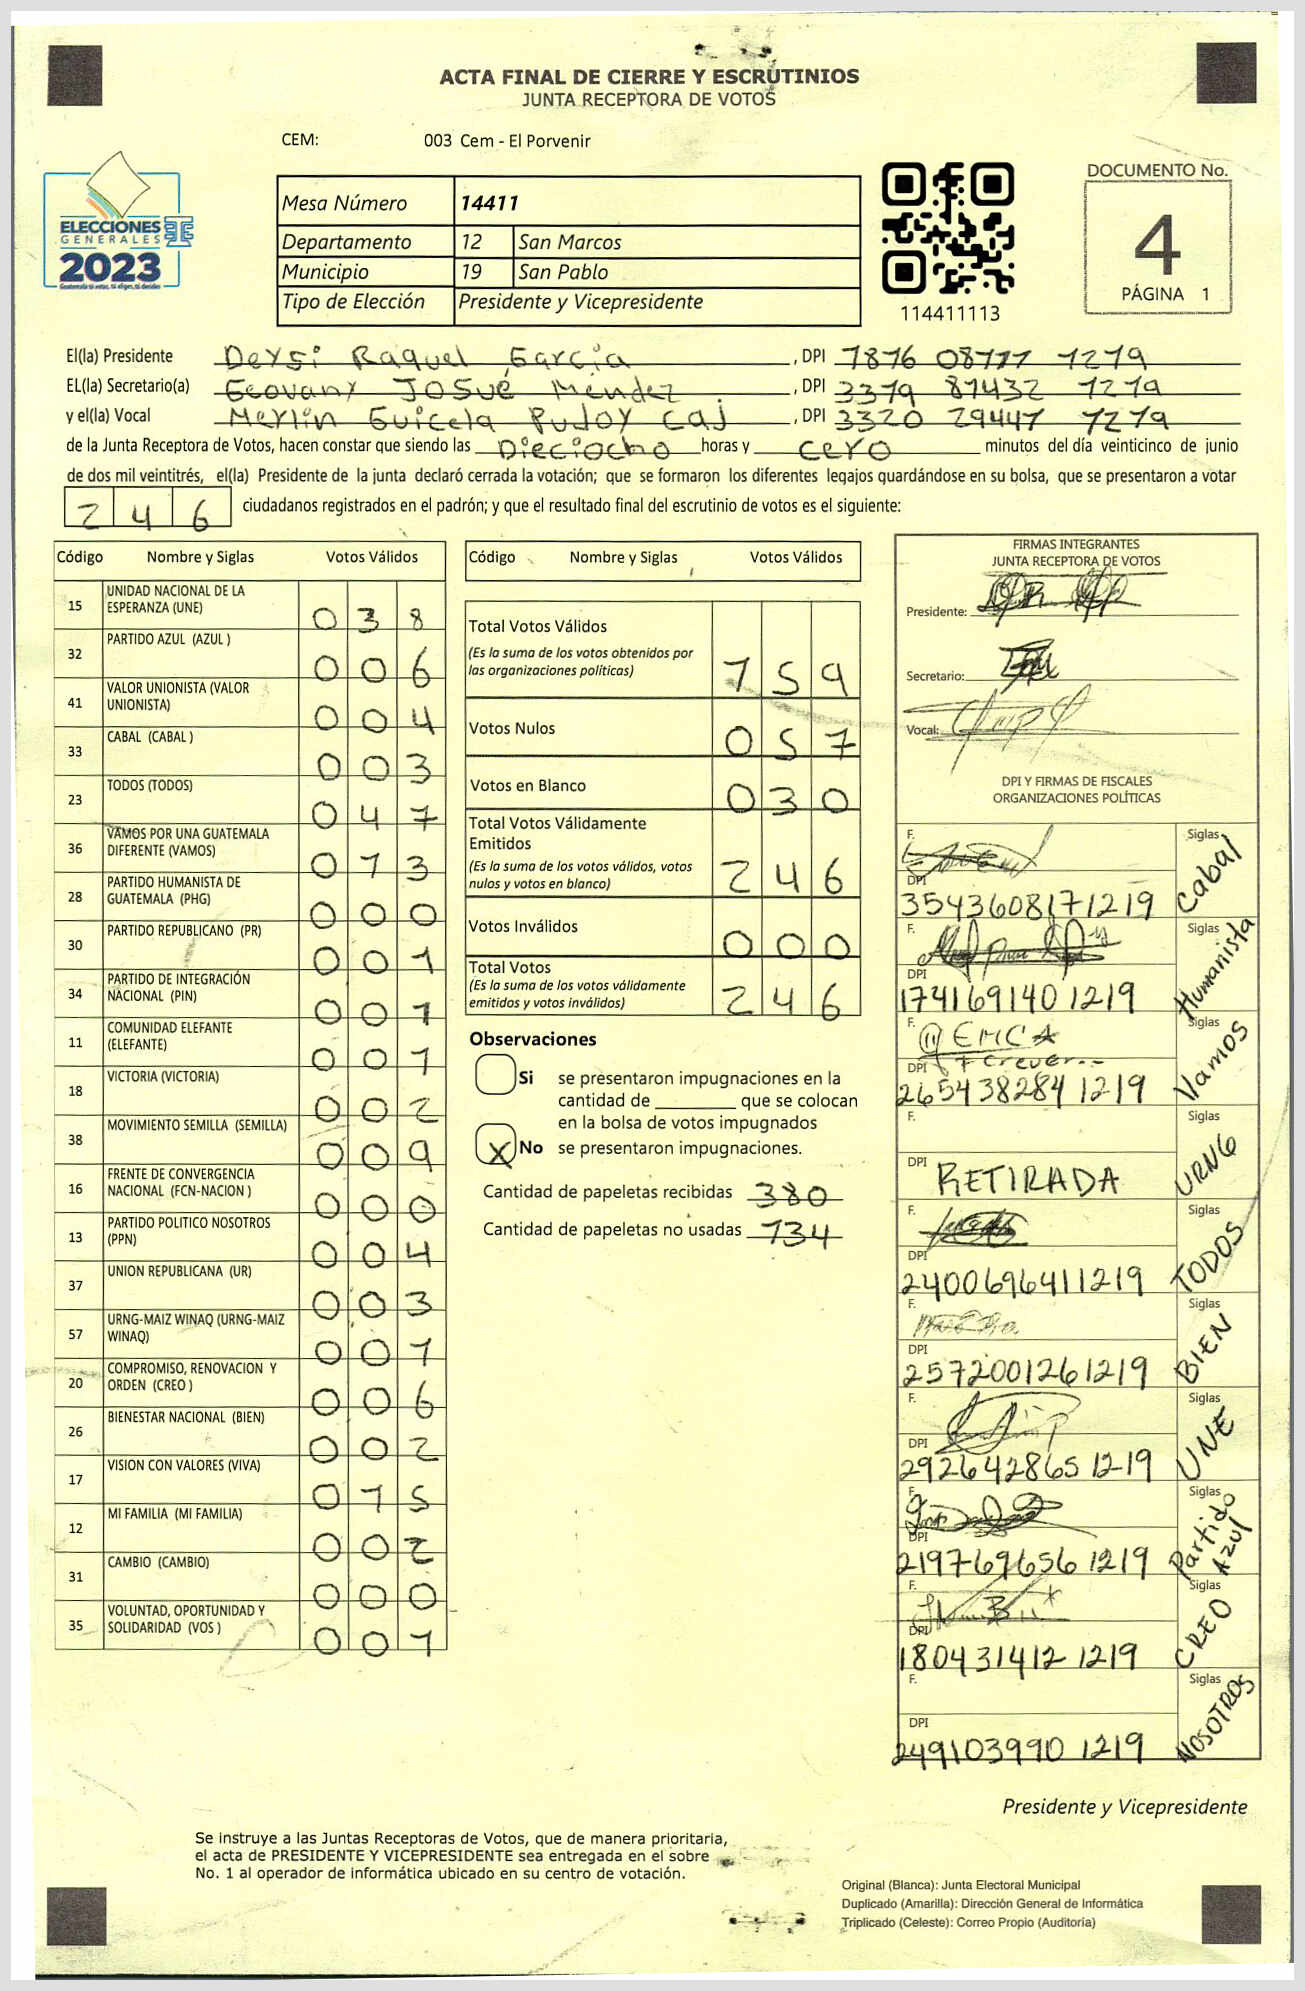 ACTA FINAL DE CIERRE Y ESCRUTINIOS
JUNTA RECEPTORA DE VOTOS
CEM: 003 Cem - El Porvenir
ELECCIONES
GENERALES
2023
Guatemala tú votas, tú eliges, tú decides
Mesa Número 14411
Departamento 12 San Marcos
Municipio 19 San Pablo
Tipo de Elección Presidente y Vicepresidente
114411113
DOCUMENTO No.
4
PÁGINA 1
El(la) Presidente Deysi Raquel García, DPI 1876 08777 1219
EL(la) Secretario(a) Geovany Josué Méndez, DPI 3379 87432 1219
y el(la) Vocal Merlin Guicela Pujoy Caj, DPI 3320 29447 1219
de la Junta Receptora de Votos, hacen constar que siendo las Dieciocho horas y cero minutos del día veinticinco de junio
de dos mil veintitrés, el(la) Presidente de la junta declaró cerrada la votación; que se formaron los diferentes legajos guardándose en su bolsa, que se presentaron a votar
246 ciudadanos registrados en el padrón; y que el resultado final del escrutinio de votos es el siguiente:
Código Nombre y Siglas Votos Válidos
15 UNIDAD NACIONAL DE LA ESPERANZA (UNE) 038
32 PARTIDO AZUL (AZUL ) 006
41 VALOR UNIONISTA (VALOR UNIONISTA) 004
33 CABAL (CABAL ) 003
23 TODOS (TODOS) 047
36 VAMOS POR UNA GUATEMALA DIFERENTE (VAMOS) 013
28 PARTIDO HUMANISTA DE GUATEMALA (PHG) 000
30 PARTIDO REPUBLICANO (PR) 001
34 PARTIDO DE INTEGRACIÓN NACIONAL (PIN) 001
11 COMUNIDAD ELEFANTE (ELEFANTE) 001
18 VICTORIA (VICTORIA) 002
38 MOVIMIENTO SEMILLA (SEMILLA) 009
16 FRENTE DE CONVERGENCIA NACIONAL (FCN-NACION ) 000
13 PARTIDO POLITICO NOSOTROS (PPN) 004
37 UNION REPUBLICANA (UR) 003
57 URNG-MAIZ WINAQ (URNG-MAIZ WINAQ) 001
20 COMPROMISO, RENOVACION Y ORDEN (CREO ) 006
26 BIENESTAR NACIONAL (BIEN) 002
17 VISION CON VALORES (VIVA) 015
12 MI FAMILIA (MI FAMILIA) 002
31 CAMBIO (CAMBIO) 000
35 VOLUNTAD, OPORTUNIDAD Y SOLIDARIDAD (VOS ) 001
Código Nombre y Siglas Votos Válidos
Total Votos Válidos 159
(Es la suma de los votos obtenidos por las organizaciones políticas)
Votos Nulos 057
Votos en Blanco 030
Total Votos Válidamente Emitidos 246
(Es la suma de los votos válidos, votos nulos y votos en blanco)
Votos Inválidos 000
Total Votos 246
(Es la suma de los votos válidamente emitidos y votos inválidos)
Observaciones
Si se presentaron impugnaciones en la
cantidad de ________ que se colocan
en la bolsa de votos impugnados
X No se presentaron impugnaciones.
Cantidad de papeletas recibidas 380
Cantidad de papeletas no usadas 134
FIRMAS INTEGRANTES
JUNTA RECEPTORA DE VOTOS
Presidente:
Secretario:
Vocal:
DPI Y FIRMAS DE FISCALES
ORGANIZACIONES POLÍTICAS
F. Siglas Cabal
DPI 3543608171219
F. Siglas Humanista
DPI 1741691401219
F. Siglas Vamos
DPI 2654382841219
F. Siglas URNG
DPI RETIRADA
F. Siglas TODOS
DPI 2400696411219
F. Siglas BIEN
DPI 2572001261219
F. Siglas UNE
DPI 2926428651219
F. Siglas Partido Azul
DPI 2197696561219
F. Siglas CREO
DPI 1804314121219
F. Siglas NOSOTROS
DPI 2491039901219
Presidente y Vicepresidente
Se instruye a las Juntas Receptoras de Votos, que de manera prioritaria,
el acta de PRESIDENTE Y VICEPRESIDENTE sea entregada en el sobre
No. 1 al operador de informática ubicado en su centro de votación.
Original (Blanca): Junta Electoral Municipal
Duplicado (Amarilla): Dirección General de Informática
Triplicado (Celeste): Correo Propio (Auditoría)